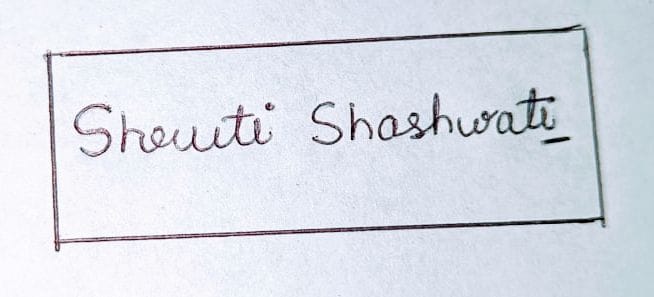 Shruti Shashwati